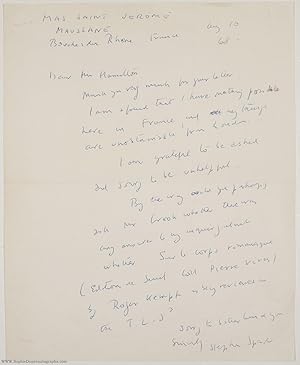 MAS SAINT JEROME
MAUSSANE
Bouches du Rhone France
Aug 10
68
Dear Mr Hamilton
Thank you very much for your letter
I am afraid that I have nothing possible
here in France and my things
are unobtainable from London.
I am grateful to be asked
and sorry to be unhelpful
By the way could you perhaps
ask Mr Crook whether there was
any answer to my inquiry about
whether Sur le corps romanesque
(Editions de Seuil Coll Pierre Vives)
by Roger Kempf is being reviewed in
the T.L.S?
Sorry to bother you
Sincerely Stephen Spender
www.SophieDupreAutographs.com